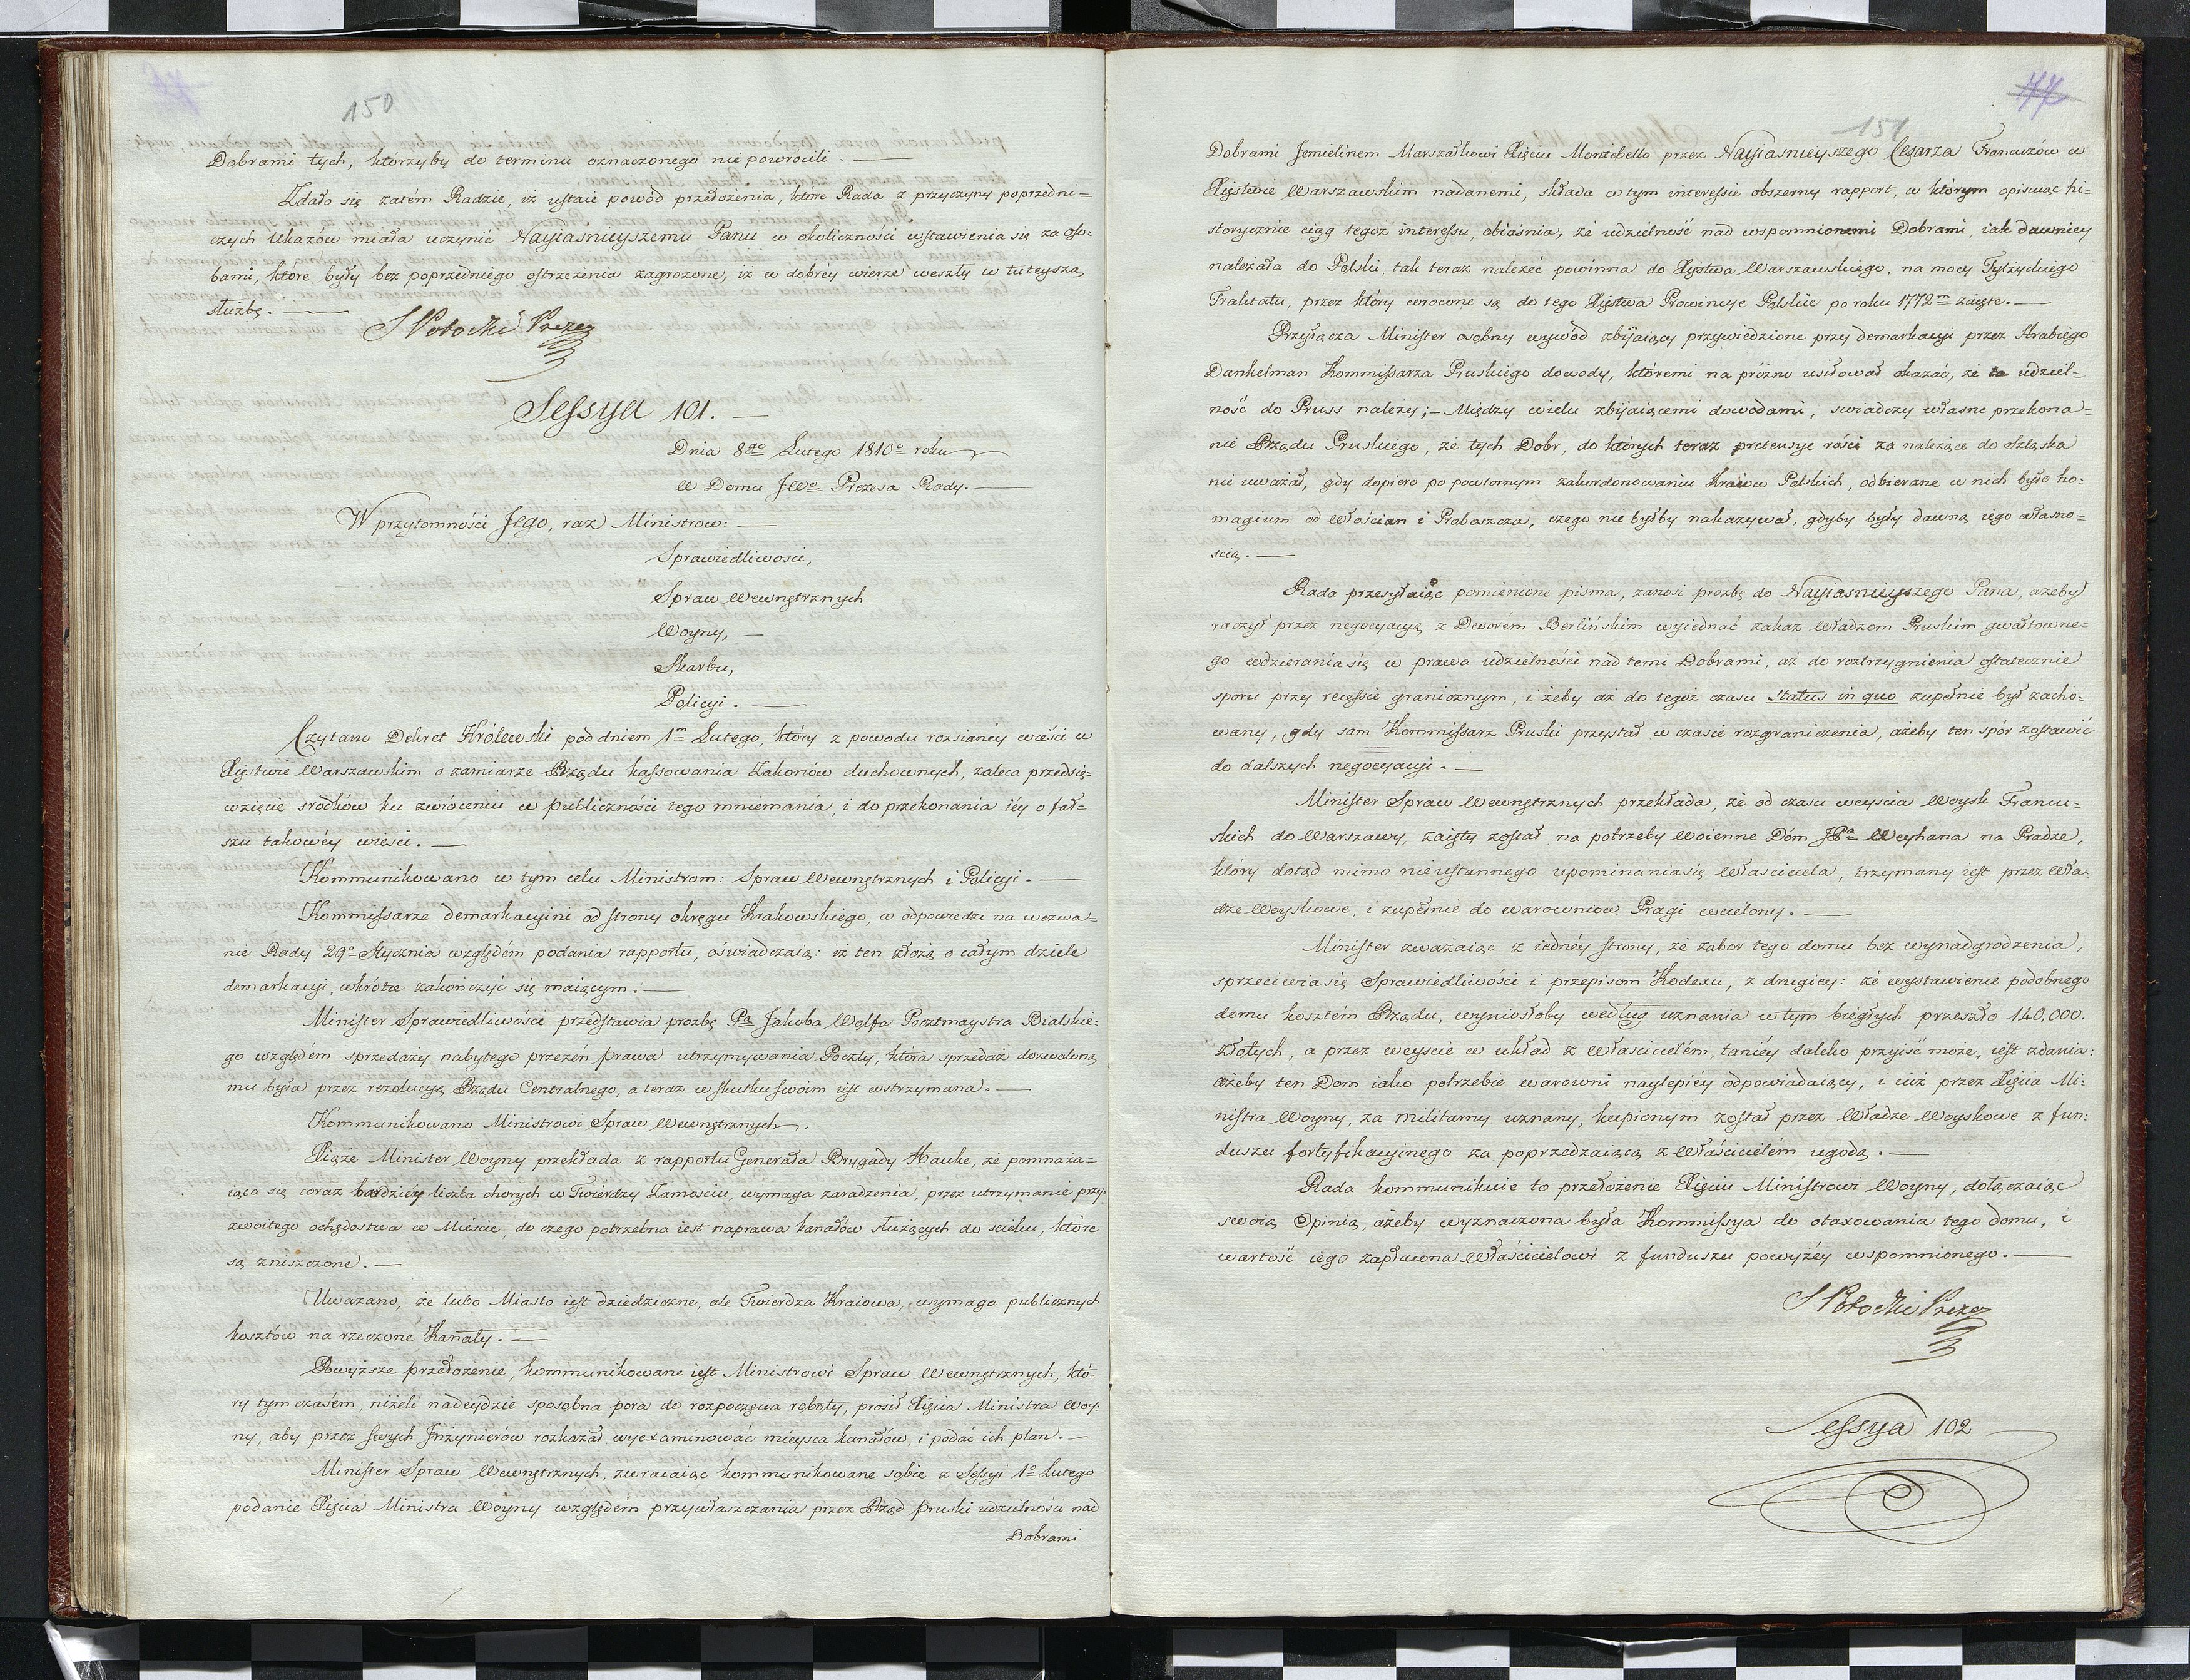 150
Dobrami tych, którzyby do terminu oznaczonego nie powrócili. —
Zdało się zatém Radzie, iż ustaie powód przełożenia, które Rada z przyczyny poprzedni=
czych Ukazów miała uczynić Nayiaśnieyszemu Panu w okoliczności wstawienia się za oso=
bami, które były bez poprzedniego ostrzeżenia zagrożone, iż w dobréy wierze weszły w tuteyszą
służbę. —
S Potocki Prezez
Sessya 101. —
Dnia 8go Lutego 1810o roku
W Domu JWo Prezesa Rady. —
W przytomności Jego, raz Ministrow: —
Sprawiedliwości,
Spraw Wewnętrznych
Woyny, —
Skarbu,
Policyi. —
Czytano Dekret Królewski pod dniem 1m Lutego, który z powodu rozsianey wieści w
Xięstwie Warszawskim o zamiarze Rządu kassowania Zakonów duchownych, zaleca przedsię=
wzięcie srodków ku zwróceniu w publiczności tego mniemania, i do przekonania iéy o fał=
szu takowéy wieści. —
Kommunikowano w tym celu Ministrom: Spraw Wewnętrznych i Policyi. —
Kommissarze demarkacyini od strony okręgu Krakowskiego, w odpowiedzi na wezwa=
nie Rady 29o Stycznia względém podania rapportu, oświadczaią: iż ten złożą o całym dziele
demarkacyi, wkrótce zakończyć się maiącym. —
Minister Sprawiedliwości przedstawia prozbę Pa Jakoba Wolfa Pocztmaystra Bialskie=
go względém sprzedaży nabytego przezeń prawa utrzymywania Poczty, która sprzedaż dozwoloną
mu była przez rezolucyą Rządu Centralnego, a teraz w skutku swoim iest wstrzymana. —
Kommunikowano Ministrowi Spraw Wewnętrznych.
Xiąże Minister Woyny przekłada z rapportu Generała Brygady Hauke, że pomnaża=
iąca się coraz bardziéy liczba chorych w Twierdzy Zamościu, wymaga zaradzenia, przez utrzymanie przy=
zwoitego ochędostwa w Mieście, do czego potrzebna iest naprawa kanałów służących do scieku, które
są zniszczone. —
Uważano, że lubo Miasto iest dziedziczne, ale Twierdza Kraiowa, wymaga publicznych
kosztów na rzeczone Kanały. —
Powyższe przełożenie, kommunikowane iest Ministrowi Spraw Wewnętrznych, któ=
ry tymczasém, niżeli nadeydzie sposobna pora do rozpoczęcia roboty, prosił Xięcia Ministra Woy=
ny, aby przez swych Inżynierów rozkazał wyexaminować mieysca kanałów, i podać ich plan. —
Minister Spraw Wewnętrznych, zwracaiąc kommunikowane sobie z Sessyi 1o Lutego
podanie Xięcia Ministra Woyny względém przywłaszczania przez Rząd pruski udzielności nad
Dobrami
77
151
Dobrami Jemielinem Marszałkowi Xięciu Montebello przez Nayiasnieyszego Cesarza Francuzów w
Xięstwie Warszawskim nadanemi, składa w tym interessie obszerny rapport, w którym opisuiąc hi=
storycznie ciąg tegoż interessu, obiaśnia, że udzielność nad wspomnionemi Dobrami, iak dawniey
należała do Polski, tak teraz należéć powinna do Xięstwa Warszawskiego, na mocy Tylżyckiego
Traktatu, przez który wrocone są do tego Xięstwa Prowincye Polskie po roku 1772m zaięte. —
Przyłącza Minister osobny wywód zbijaiący przywiedzione przy demarkacyi przez Hrabiego
Dankelman Kommissarza Pruskiego dowody, któremi na próżno usiłował okazać, że ta udziel=
ność do Pruss należy; – Między wielu zbijaiącemi dowodami, swiadczy własne przekona=
nie Rządu Pruskiego, że tych Dobr, do których teraz pretensye rości za należące do Szląska
nie uważał, gdy dopiero po powtornym zakordonowaniu Kraiow Polskich, odbierane w nich było ho=
magium od Włościan i Proboszcza, czego nie byłby nakazywał, gdyby były dawną iego własno=
scią. —
Rada przesyłaiąc pomienione pisma, zanosi prozbę do Nayiasnieyszego Pana, ażeby
raczył przez negocyacyą z Dworém Berlińskim wyiednać zakaz Władzom Pruskim gwałtowne=
go wdzierania się w prawa udzielności nad temi Dobrami, aż do roztrzygnienia ostatecznie
sporu przy recessie granicznym, i żeby aż do tegoż czasu Status in quo zupełnie był zacho=
wany, gdy sam Kommissarz Pruski przystał w czasie rozgraniczenia, ażeby ten spór zostawić
do dalszych negocyacyi. —
Minister Spraw Wewnętrznych przekłada, że od czasu weyscia Woysk Francu=
skich do Warszawy, zaięty został na potrzeby Woienne Dóm JPa Weyhana na Pradze,
który dotąd mimo nieustannego upominania się Własciciela, trzymany iest przez Wła=
dze Woyskowe, i zupełnie do warowniow Pragi wcielony. —
Minister zważaiąc z iednéy strony, że zabor tego domu bez wynadgrodzenia,
sprzeciwia się Sprawiedliwości i przepisom Kodexu, z drugiey: że wystawienie podobnego
domu kosztém Rządu, wyniosłoby według uznania w tym biegłych przeszło 140,000.
złotych, a przez weyscie w układ z Włascicielém, taniéy daleko przyiść może, iest zdania:
ażeby ten Dom iako potrzebie warowni naylepiéy odpowiadaiący, i iuż przez Xięcia Mi=
nistra Woyny, za militarny uznany, kupionym został przez Władze Woyskowe z fun=
duszu fortyfikacyinego za poprzedzaiącą z Właścicielém ugodą. —
Rada kommunikuie to przełożenie Xięciu Ministrowi Woyny, dołączaiąc
swoią Opinią, ażeby wyznaczona była Kommissya do otaxowania tego domu, i
wartość iego zapłacona Właścicielowi z funduszu powyżéy wspomnionego. —
S Potocki Prezez
Sessya 102